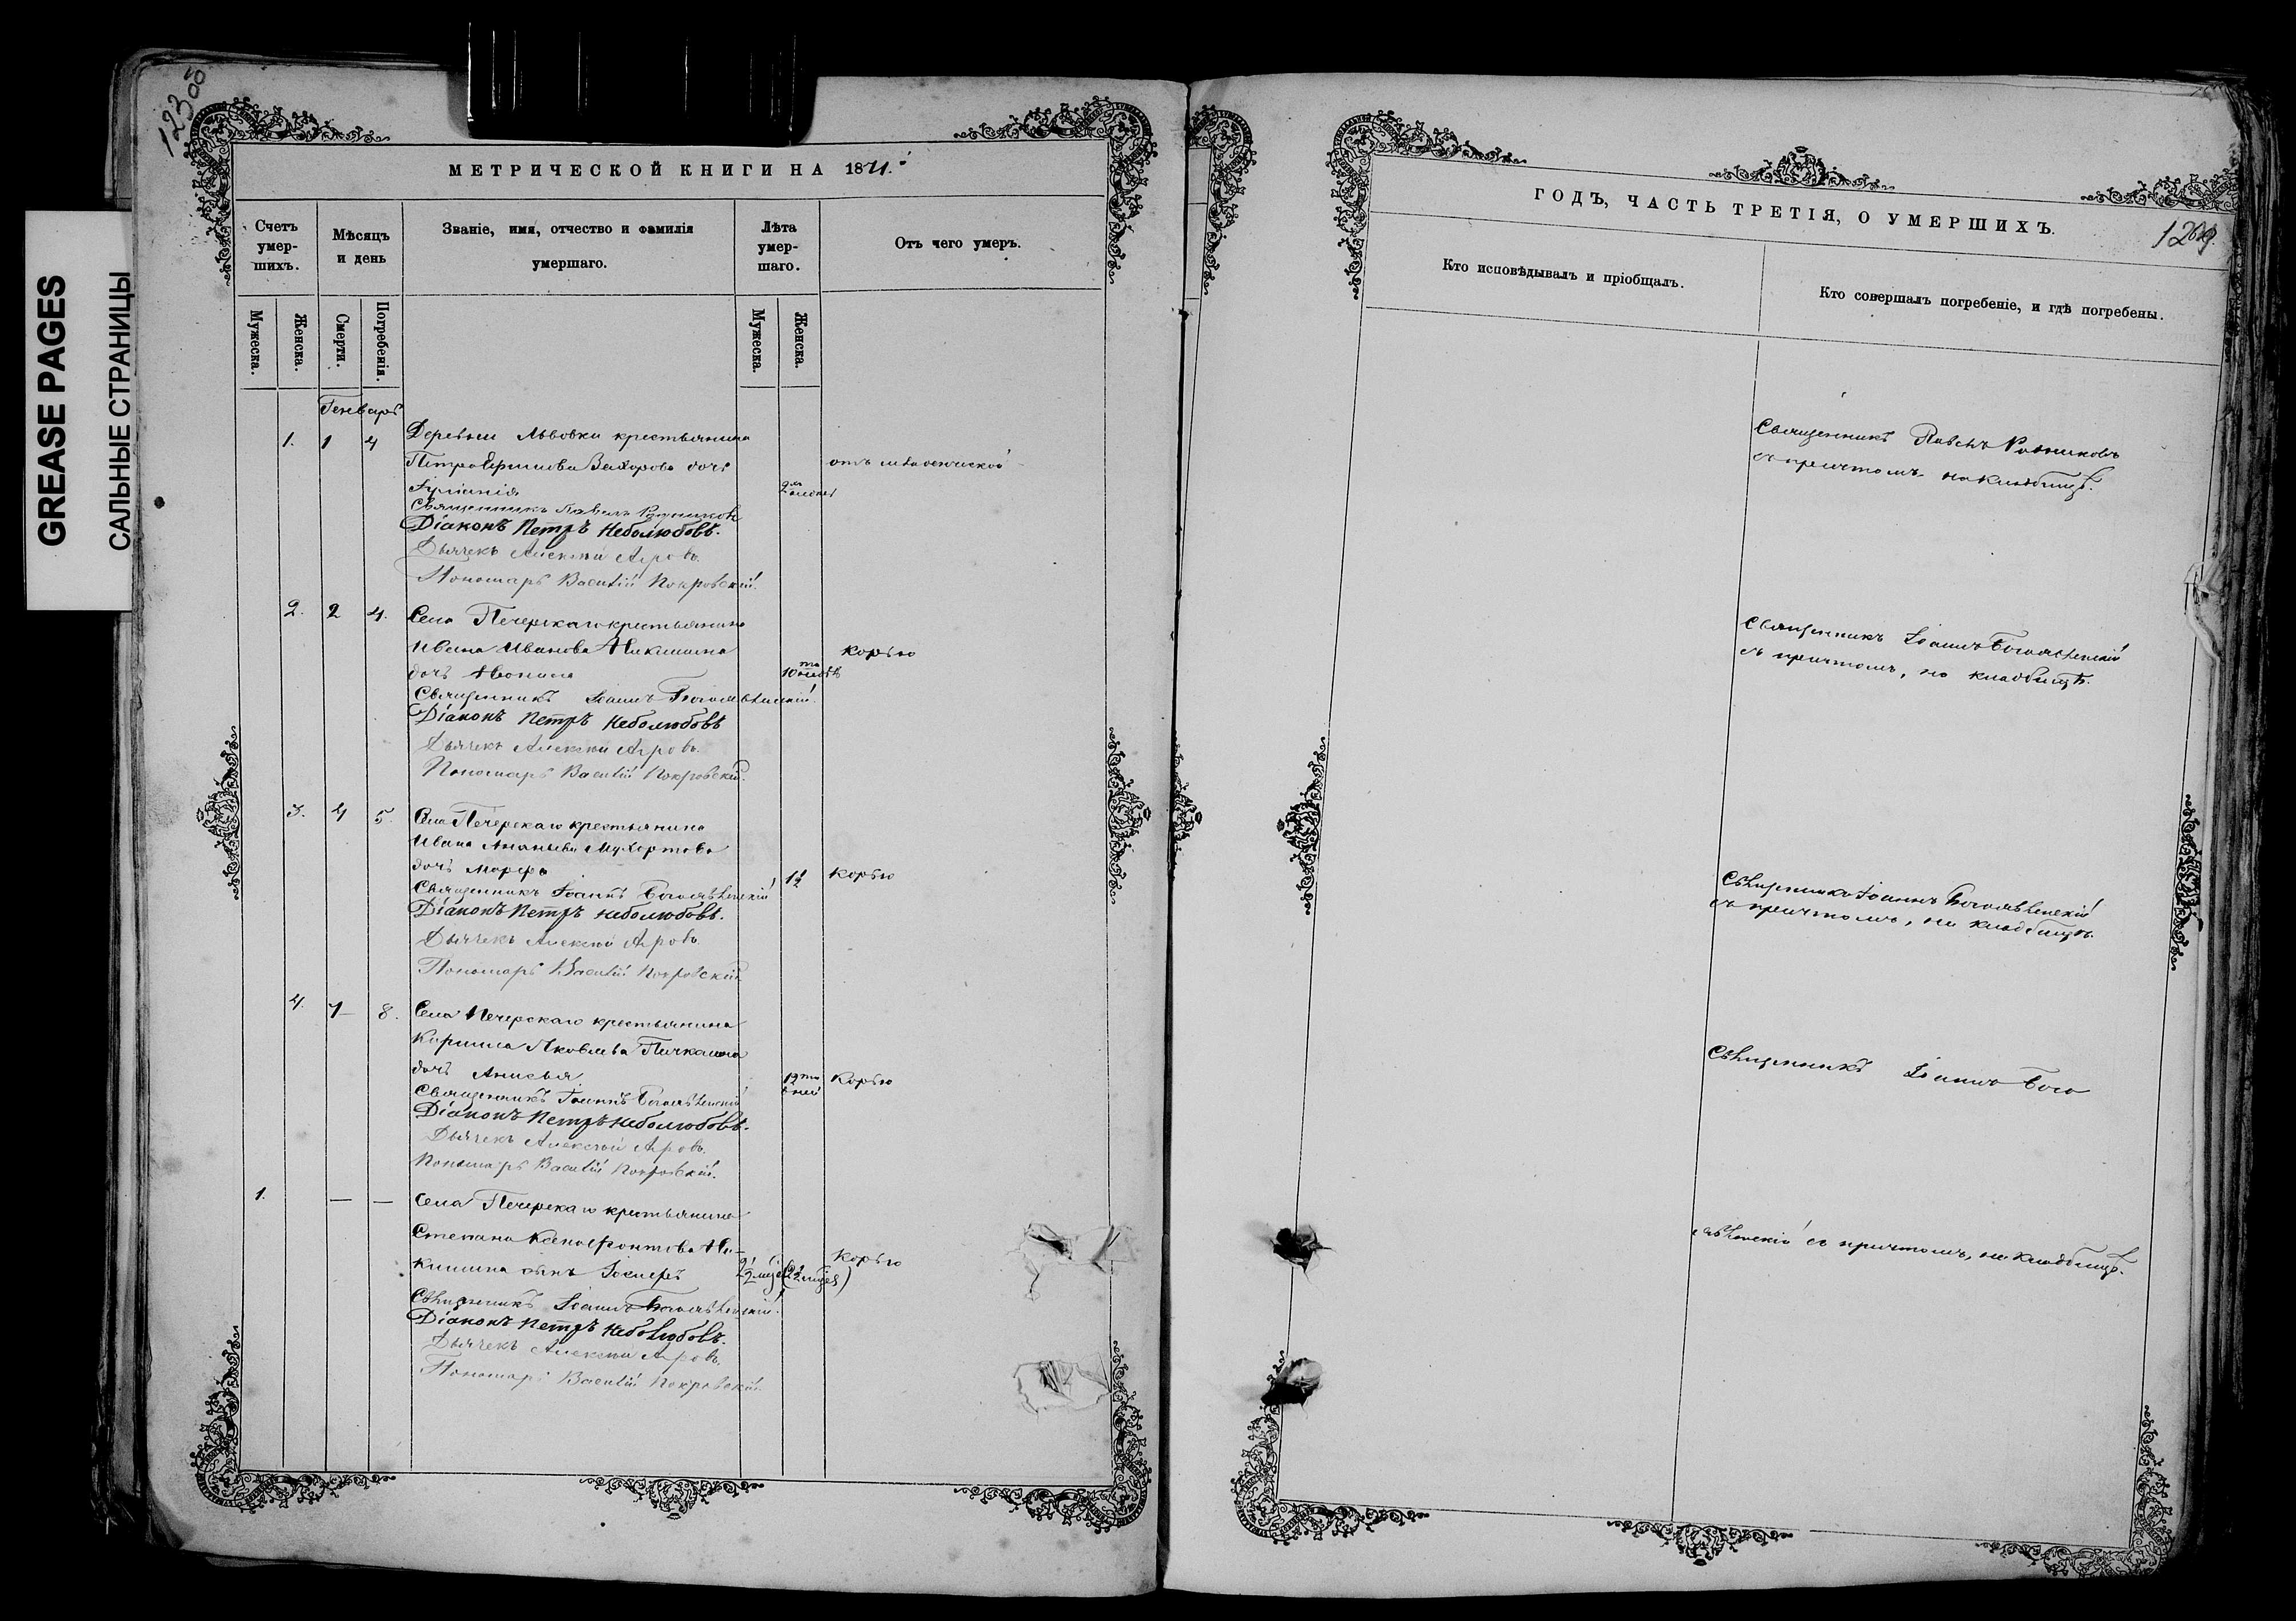 GREASE PAGES
САЛЬНЫЕ СТРАНИЦЫ
МЕТРИЧЕСКОЙ КНИГИ НА 1871.
Счетъ умер-шихъ.
Мѣсяцъ и день
Званіе, имя, отчество и фамилія умершаго.
Лѣта умер-шаго.
Отъ чего умеръ.
Мужеска.
Женска.
Смерти.
Погребенія.
Мужеска.
Женска.
Генварь
1. 1 4 Деревни Львовки крестьянина
Петра Ефимова Вахорова дочь отъ младенческой
Священникъ Павелъ Родниковъ
Діаконъ Петръ Неболюбовъ.
Дьячекъ Алексѣй Агровъ.
Пономарь Василій Покровскій.
2. 2 4. Села Печерскаго крестьянина
Ивана Иванова Никишина корью
дочь
Священникъ Іоаннъ Богоявленскій
Діаконъ Петръ Неболюбовъ
Дьячекъ Алексѣй Агровъ.
Пономарь Василій Покровскій.
3. 4 5. Села Печерскаго крестьянина
Ивана Ананьева Мухортова
дочь Марфа 1½ корью
Священникъ Іоаннъ Богоявленскій
Діаконъ Петръ Неболюбовъ.
Дьячекъ Алексѣй Агровъ.
Пономарь Василій Покровскій
4. 7 8. Села Печерскаго крестьянина
Яковлева
дочь Анисья 12ти дней Корью
Священникъ Іоаннъ Богоявленскій
Діаконъ Петръ Неболюбовъ.
Дьячекъ Алексѣй Агровъ.
Пономарь Василій Покровскій.
1. — — Села Печерскаго крестьянина
Степана Ксенофонтова Ни-
кишина сынъ Іосифъ корью
Священникъ Іоаннъ Богоявленскій.
Діаконъ Петръ Неболюбовъ.
Дьячекъ Алексѣй Агровъ.
Пономарь Василій Покровскій.
ГОДЪ, ЧАСТЬ ТРЕТІЯ, О УМЕРШИХЪ.
Кто исповѣдывалъ и пріобщалъ.
Кто совершалъ погребеніе, и гдѣ погребены.
Священникъ Павелъ Родниковъ
съ причтомъ на кладбищѣ.
Священникъ Іоаннъ Богоявленскій
съ причтомъ, на кладбищѣ.
Священникъ Іоаннъ Богоявленскій
съ причтомъ, на кладбищѣ.
Священникъ Іоаннъ Бого
явленскій съ причтомъ, на кладбищѣ.